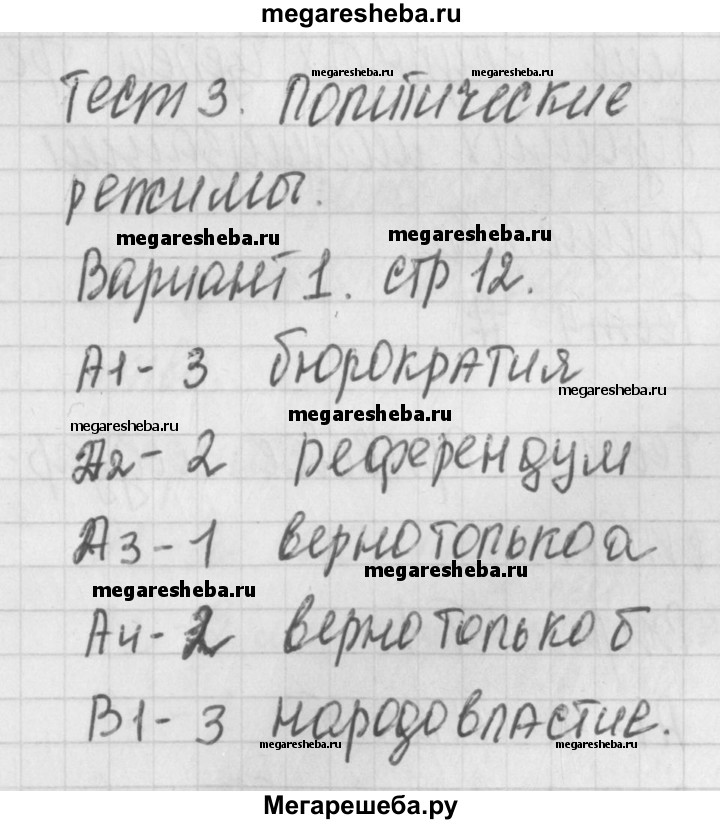 megaresheba.ru
megaresheba.ru megaresheba.ru
Тест 3. Политические
режимы.
megaresheba.ru megaresheba.ru
Вариант 1. стр 12.
А1- 3 бюрократия
megaresheba.ru
megaresheba.ru megaresheba.ru
А2- 2 референдум
А3-1 верно только а
megaresheba.ru
megaresheba.ru
А4-2 верно только б
В1- 3 народовластие.
megaresheba.ru megaresheba.ru
Мегарешеба.ру